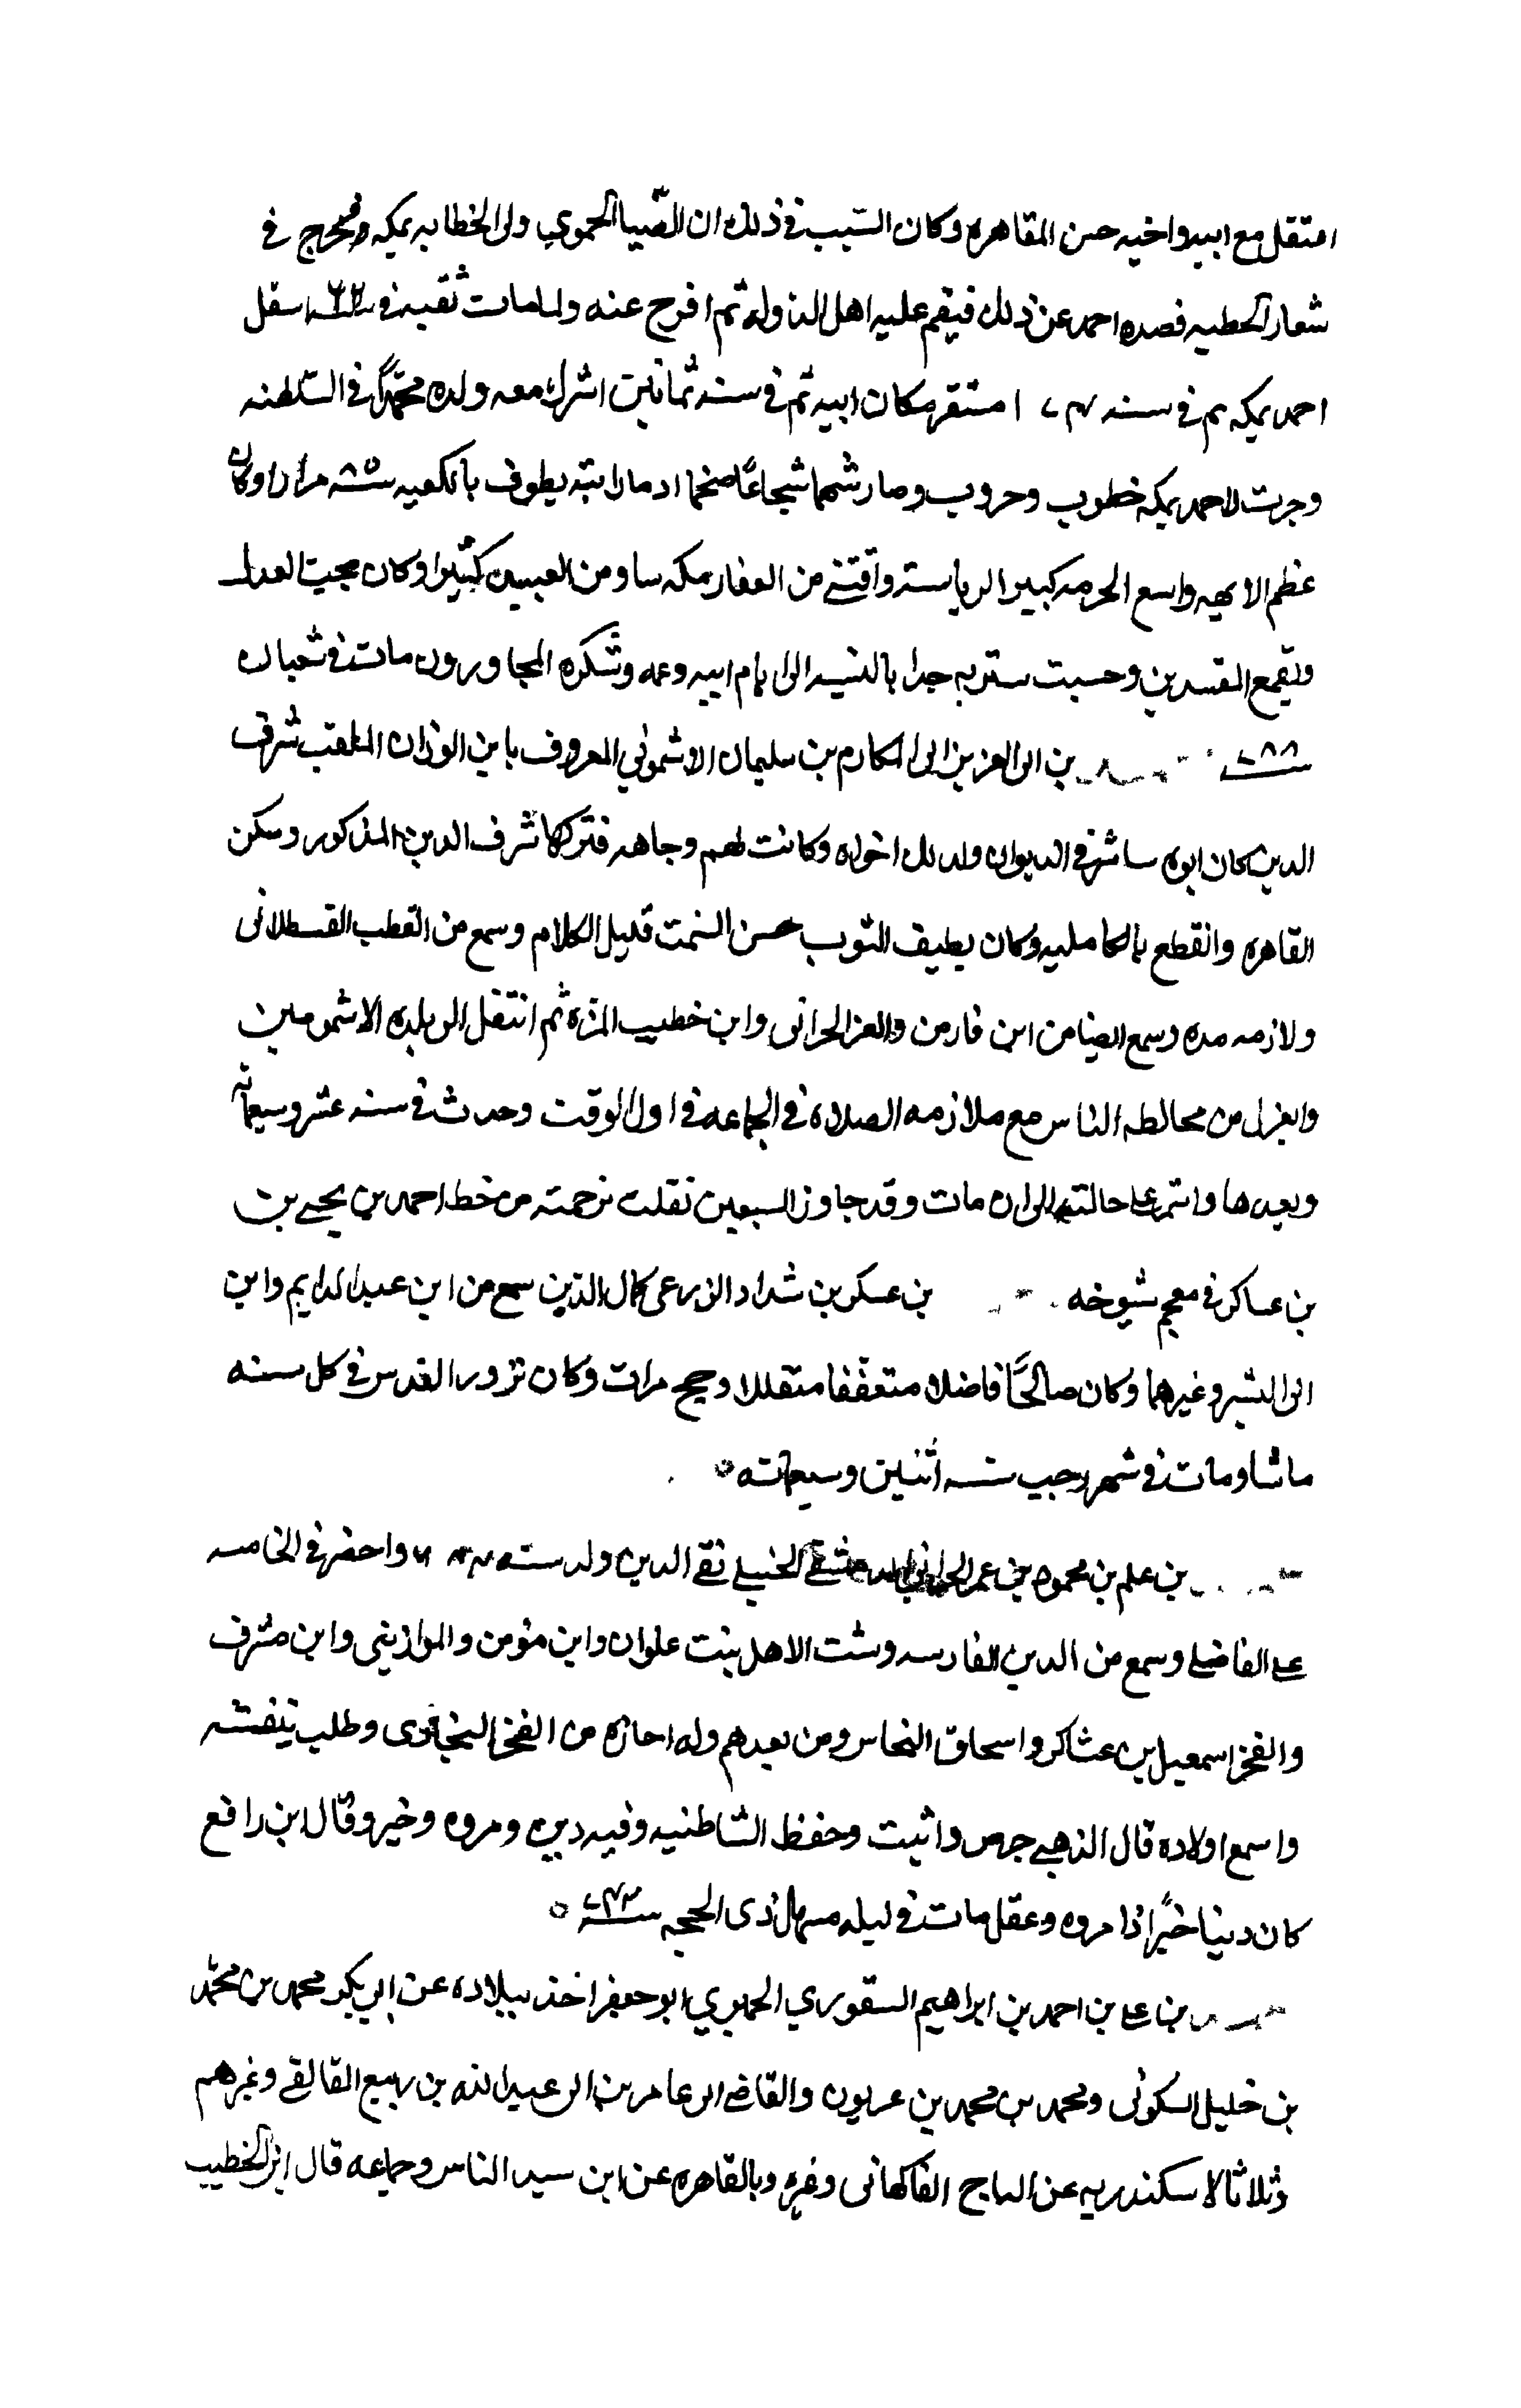 اعتقل مع ابيه واخيه حسن المقاهره وكان السبب في ذلك ان الضيا الحموي ولى الخطابه بمكه وخرج في
شعار الخطبه فصده احمد عن ذلك فيقم عليه اهل الدوله ثم افرج عنه ولما مات ثقبه في سنه ٧٦٢ استقل
احمد بمكه ثم في سنه استقر مكان ابيه ثم في سنه ثمانين اشرك معه ولده محمدًا في السلطنه
وجرت لاحمد بمكه خطوب وحروب وصار شهما شجاعًا ضخما ادما رايته يطوف بالكعبه سنه مرارا وكان
عظيم الابهه واسع الحرمه كبير الرياسه واقتنى من العقار بمكه ساو ومن العبيد كثيرا وكان يحب العدل
ويقمع المفسدين وحسبت سيرته جدا بالنسبه الى ايام ابيه وعمه وشكره المجاورون مات في شعبان
سنه ٧٨٨ بن ابى العز بن ابى المكارم بن سليمان الاشموني المعروف بابن الوزان الملقب شرف
الدين كان ابوه ساشر في الديوان ولذلك اخواه وكانت لهم وجاهه فتركها شرف الدين المذكور وسكن
القاهره وانقطع بالكامليه وكان نظيف الثوب حسن السمت قليل الكلام وسمع من القطب القسطلانى
ولازمه مده وسمع ايضا من ابن فارس والعز الحرانى وابن خطيب المزه ثم انتقل الى بلده الاشمومين
وانعزل من مخالطه الناس مع ملازمه الصلاه في الجماعه في اول الوقت وحدث في سنه عشر وسبعمائه
وبعدها واستمر على حالته الى ان مات وقد جاوز السبعين نقلت ترجمته من خط احمد بن يحيى بن
بن عساكر في معجم شيوخه بن عسكر بن شداد الزرعى كمال الدين سمع من ابن عبد الدايم وابن
ابى اليسر وغيرهما وكان صالحًا فاضلا متعففا متقللا وحج مرات وكان يزور القدس في كل سنه
ماشيا ومات في شهر رجب سنه اثنين وسبعمائه
بن علم بن محمود بن عمر الحرانى الدمشقي الحنبلي تقي الدين ولد سنه واحضر في الخامسه
على الفاضلي وسمع من الدين الفارسه وست الاهل بنت علوان وابن مؤمن والموازينى وابن مشرف
والفخر اسمعيل بن عساكر واسحاق النحاس ومن بعدهم وله اجازه من الفخر البخارى وطلب بنفسه
واسمع اولاده قال الذهبي حرص واثبت وحفظ الشاطبيه وفيه دين ومروه وخير وقال ابن رافع
كان دينا خيرًا ذا مروه وعقل مات في ليله مستهل ذى الحجه سنه ٧٤٣
بن على بن احمد بن ابراهيم السقوري الحميري ابو جعفر اخذ ببلاده عن ابي بكر محمد بن محمد
بن خليل السكونى ومحمد بن محمد بن عربون والقاضي ابى عامر بن ابى عبد الله بن ربيع القالقي وغيرهم
وثلاثا لاسكندريه عن التاج الفاكهانى وغيره وبالقاهره عن ابن سيد الناس وجماعه قال ابن الخطيب